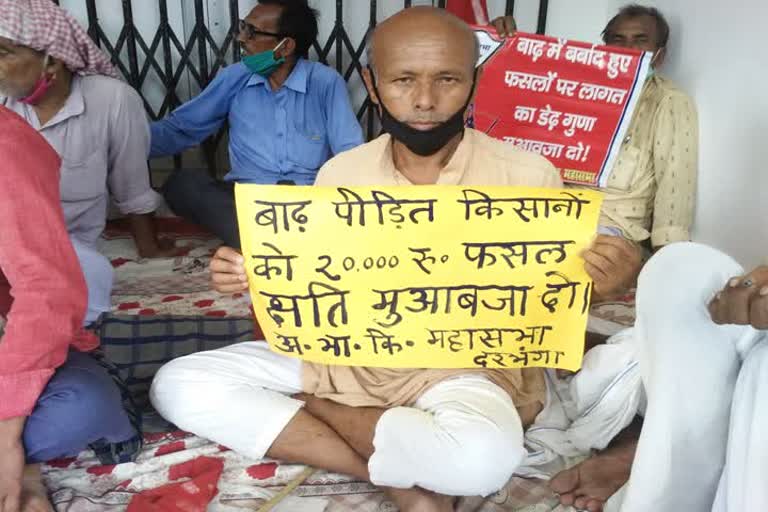 बाढ़ में बर्बाद हुए
फसलों पर लागत
का डेढ़ गुणा
मुआवजा दो!
महासभा
बाढ़ पीड़ित किसानों
को २०,००० रु० फसल
क्षति मुआबजा दो।
अ. भा. कि. महासभा
दरभंगा